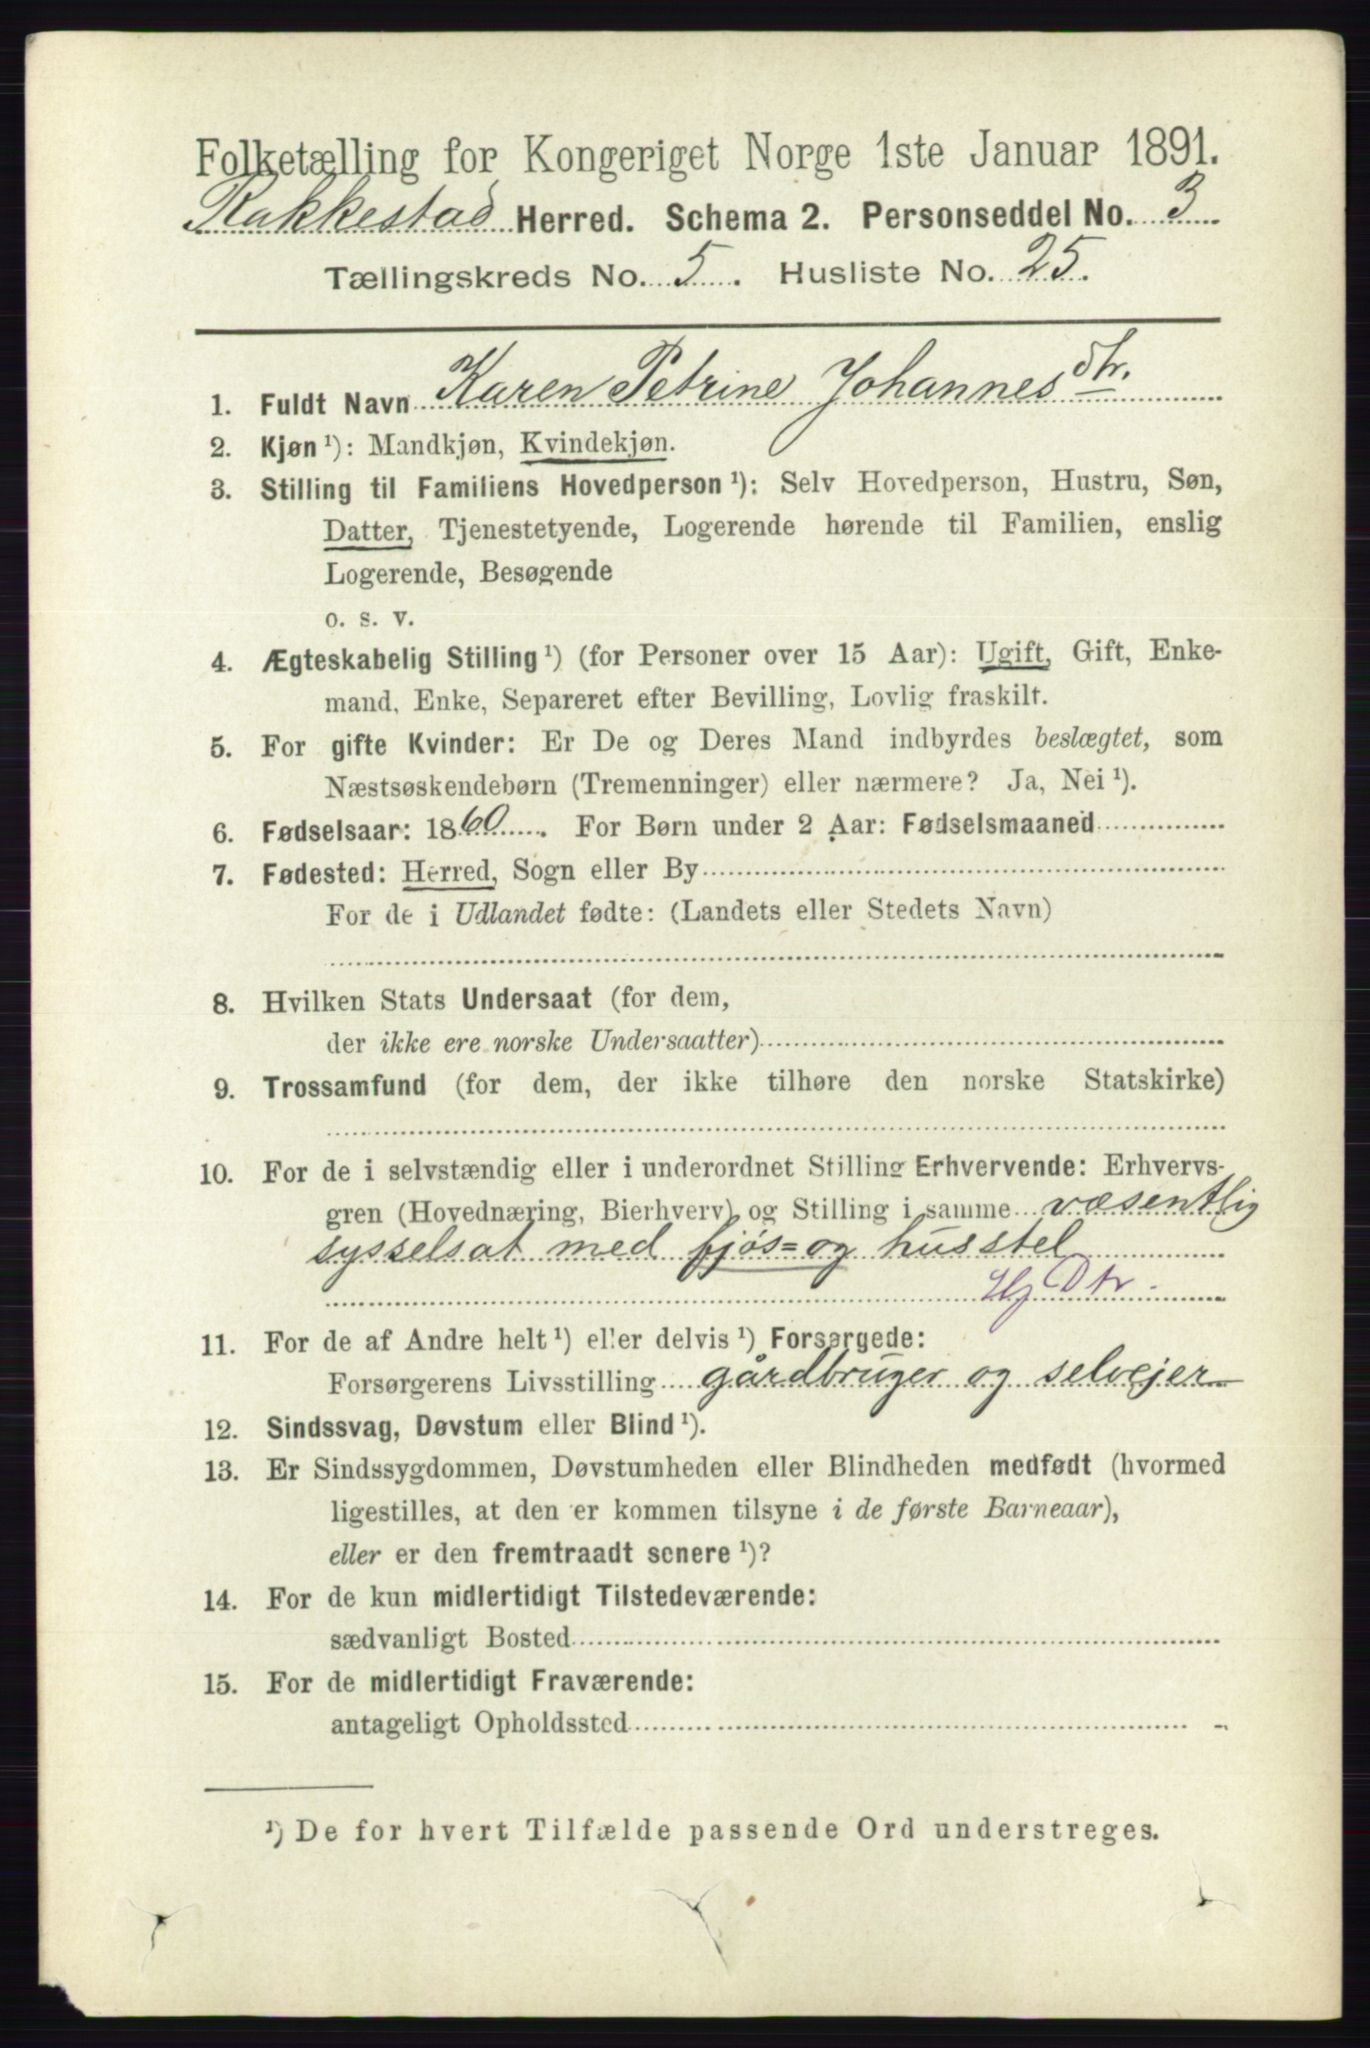 Folketælling for Kongeriget Norge 1ste Januar 1891.
Rakkestad Herred. Schema 2. Personseddel No. 3
Tællingskreds No. 5. Husliste No. 25.
1. Fuldt Navn Karen Petrine Johannesdtr.
2. Kjøn ¹): Mandkjøn, Kvindekjøn.
3. Stilling til Familiens Hovedperson ¹): Selv Hovedperson, Hustru, Søn,
Datter, Tjenestetyende, Logerende hørende til Familien, enslig
Logerende, Besøgende
o. s. v.
4. Ægteskabelig Stilling ¹) (for Personer over 15 Aar): Ugift, Gift, Enke-
mand, Enke, Separeret efter Bevilling, Lovlig fraskilt.
5. For gifte Kvinder: Er De og Deres Mand indbyrdes beslægtet, som
Næstsøskendebørn (Tremenninger) eller nærmere? Ja, Nei ¹).
6. Fødselsaar: 1860. For Børn under 2 Aar: Fødselsmaaned
7. Fødested: Herred, Sogn eller By
For de i Udlandet fødte: (Landets eller Stedets Navn)
8. Hvilken Stats Undersaat (for dem,
der ikke ere norske Undersaatter)
9. Trossamfund (for dem, der ikke tilhøre den norske Statskirke)
10. For de i selvstændig eller i underordnet Stilling Erhvervende: Erhvervs-
gren (Hovednæring, Bierhverv) og Stilling i samme væsentlig
sysselsat med fjøs- og husstel
Hj Dtr.
11. For de af Andre helt ¹) eller delvis ¹) Forsørgede:
Forsørgerens Livsstilling gårdbruger og selvejer
12. Sindssvag, Døvstum eller Blind ¹).
13. Er Sindssygdommen, Døvstumheden eller Blindheden medfødt (hvormed
ligestilles, at den er kommen tilsyne i de første Barneaar),
eller er den fremtraadt senere ¹)?
14. For de kun midlertidigt Tilstedeværende:
sædvanligt Bosted
15. For de midlertidigt Fraværende:
antageligt Opholdssted
¹) De for hvert Tilfælde passende Ord understreges.